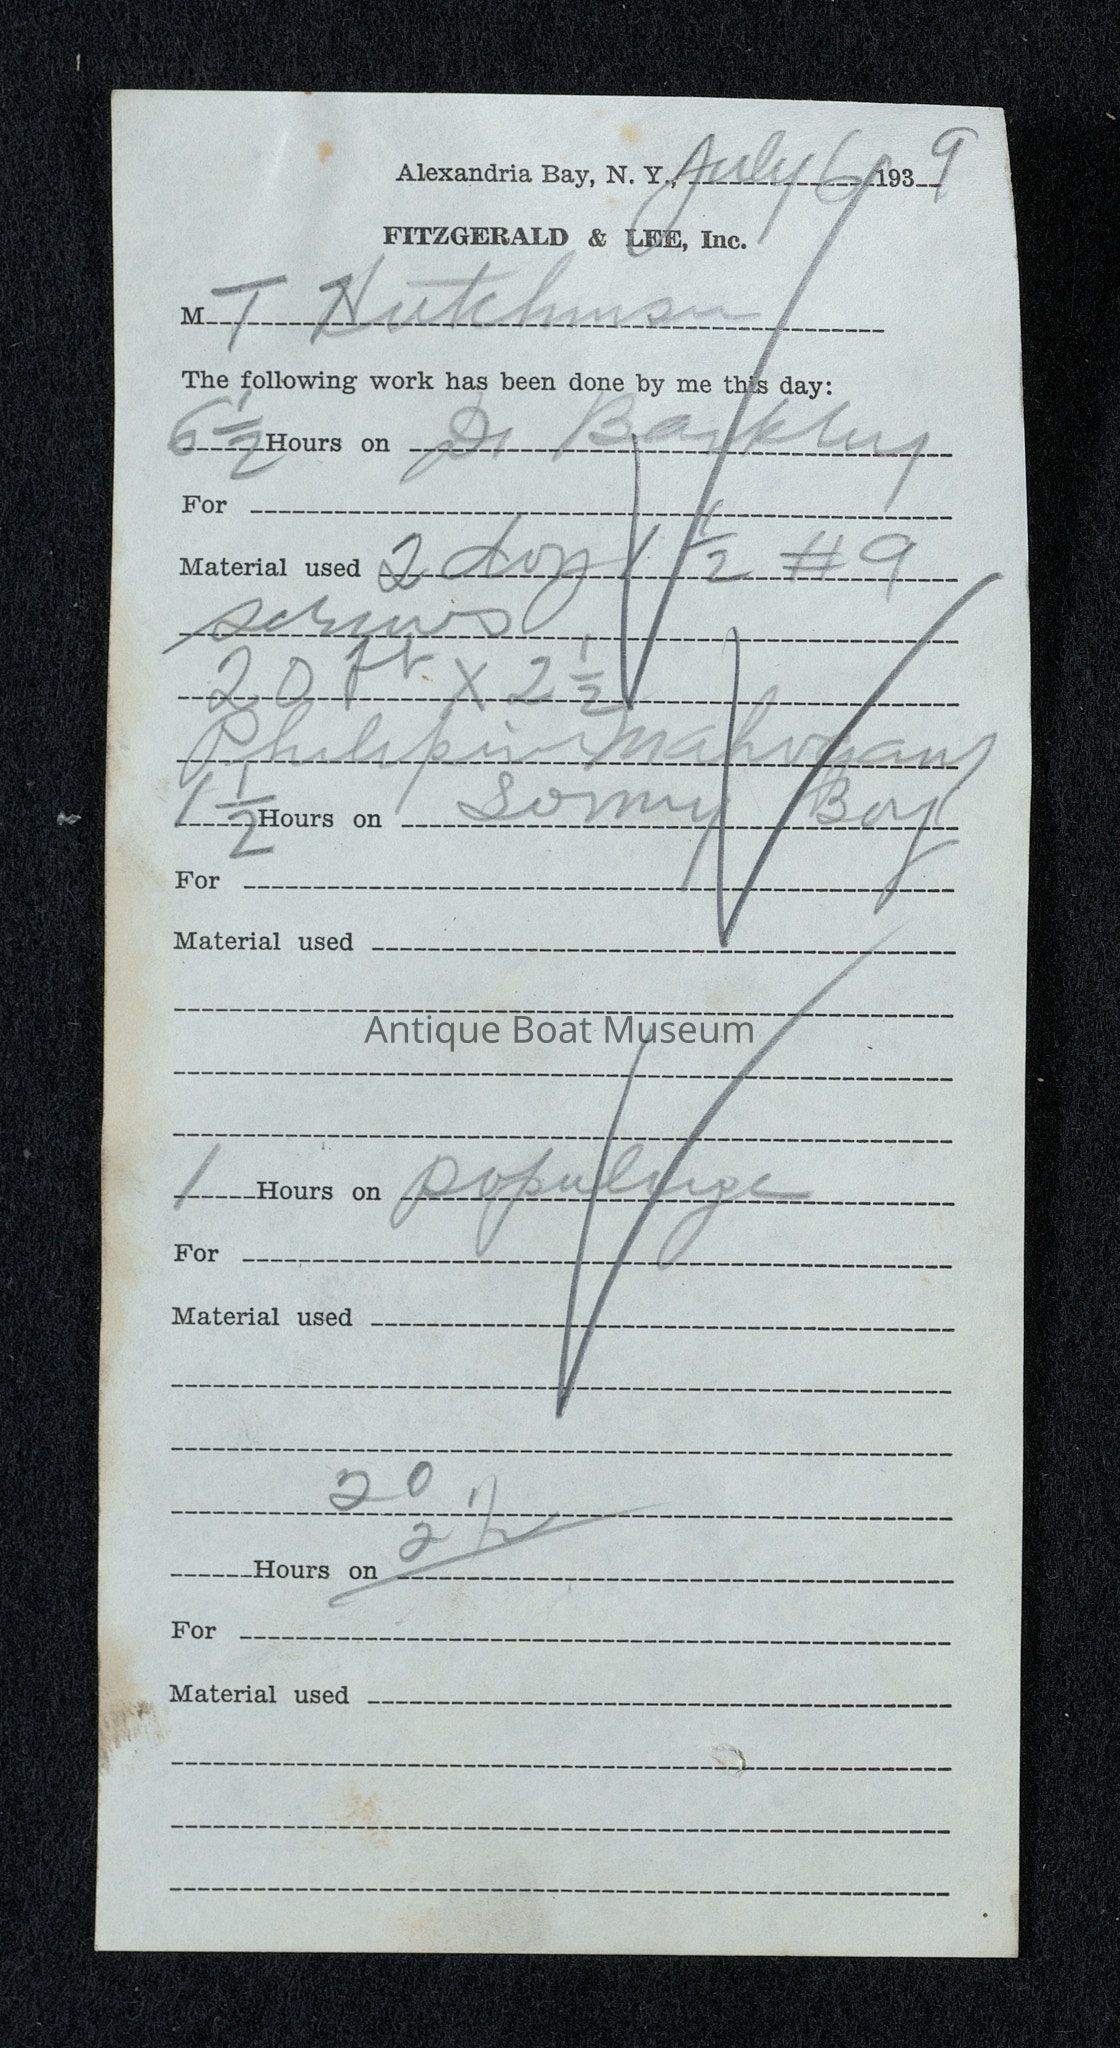 Alexandria Bay, N. Y., July 6 1939
FITZGERALD & LEE, Inc.
M T Hutchinson
The following work has been done by me this day:
6 1/2 Hours on Dr Barkley
For
Material used 2 doz 1 1/2 #9
screws
20 ft x 2 1/2
Philipin Mahogany
1 1/2 Hours on Sonny Boy
For
Material used
Antique Boat Museum
1 Hours on
For
Material used
20
2 1/2
Hours on
For
Material used